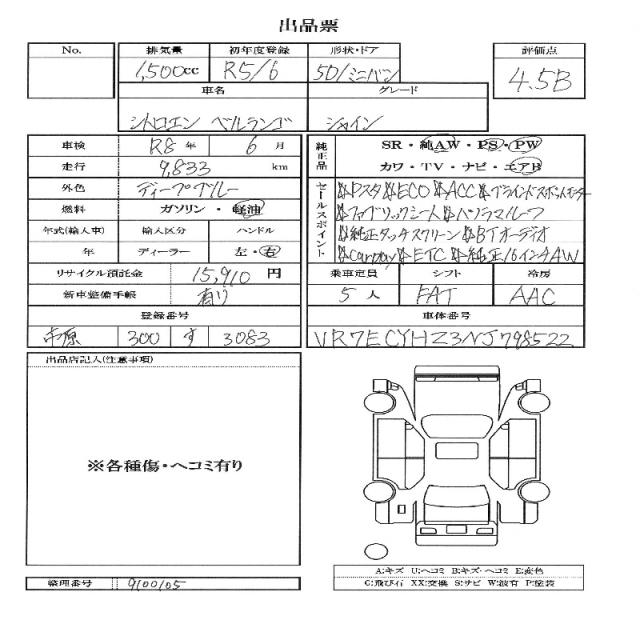 出品票
No. 排気量 初年度登録 形状・ドア 評価点
1,500cc R5/6 5D/ミニバン 4.5B
車名 グレード
シトロエン ベルランゴ シャイン
車検 R8年 6月
走行 9,833 km
外色 ディープブルー
燃料 ガソリン・軽油
年式(輸入車) 輸入区分 ハンドル
年 ディーラー 左・右
リサイクル預託金 15,910 円
新車整備手帳 有り
登録番号
市原 300 す 3083
純正品 SR・純AW・PS・PW
カワ・TV・ナビ・エアB
セールスポイント
☆Dスタ☆ECO☆ACC☆ブラインドスポットモニター
☆ファブリックシート☆パノラマルーフ
☆純正タッチスクリーン☆BTオーディオ
☆Carplay☆ETC☆純正16インチAW
乗車定員 シフト 冷房
5人 FAT AAC
車体番号
VR7ECYHZ3NJ798522
出品店記入(注意事項)
※各種傷・ヘコミ有り
A:キズ U:ヘコミ B:キズ・ヘコミ E:変色
G:飛び石 XX:交換 S:サビ W:波有 P:塗装
整理番号 9100105